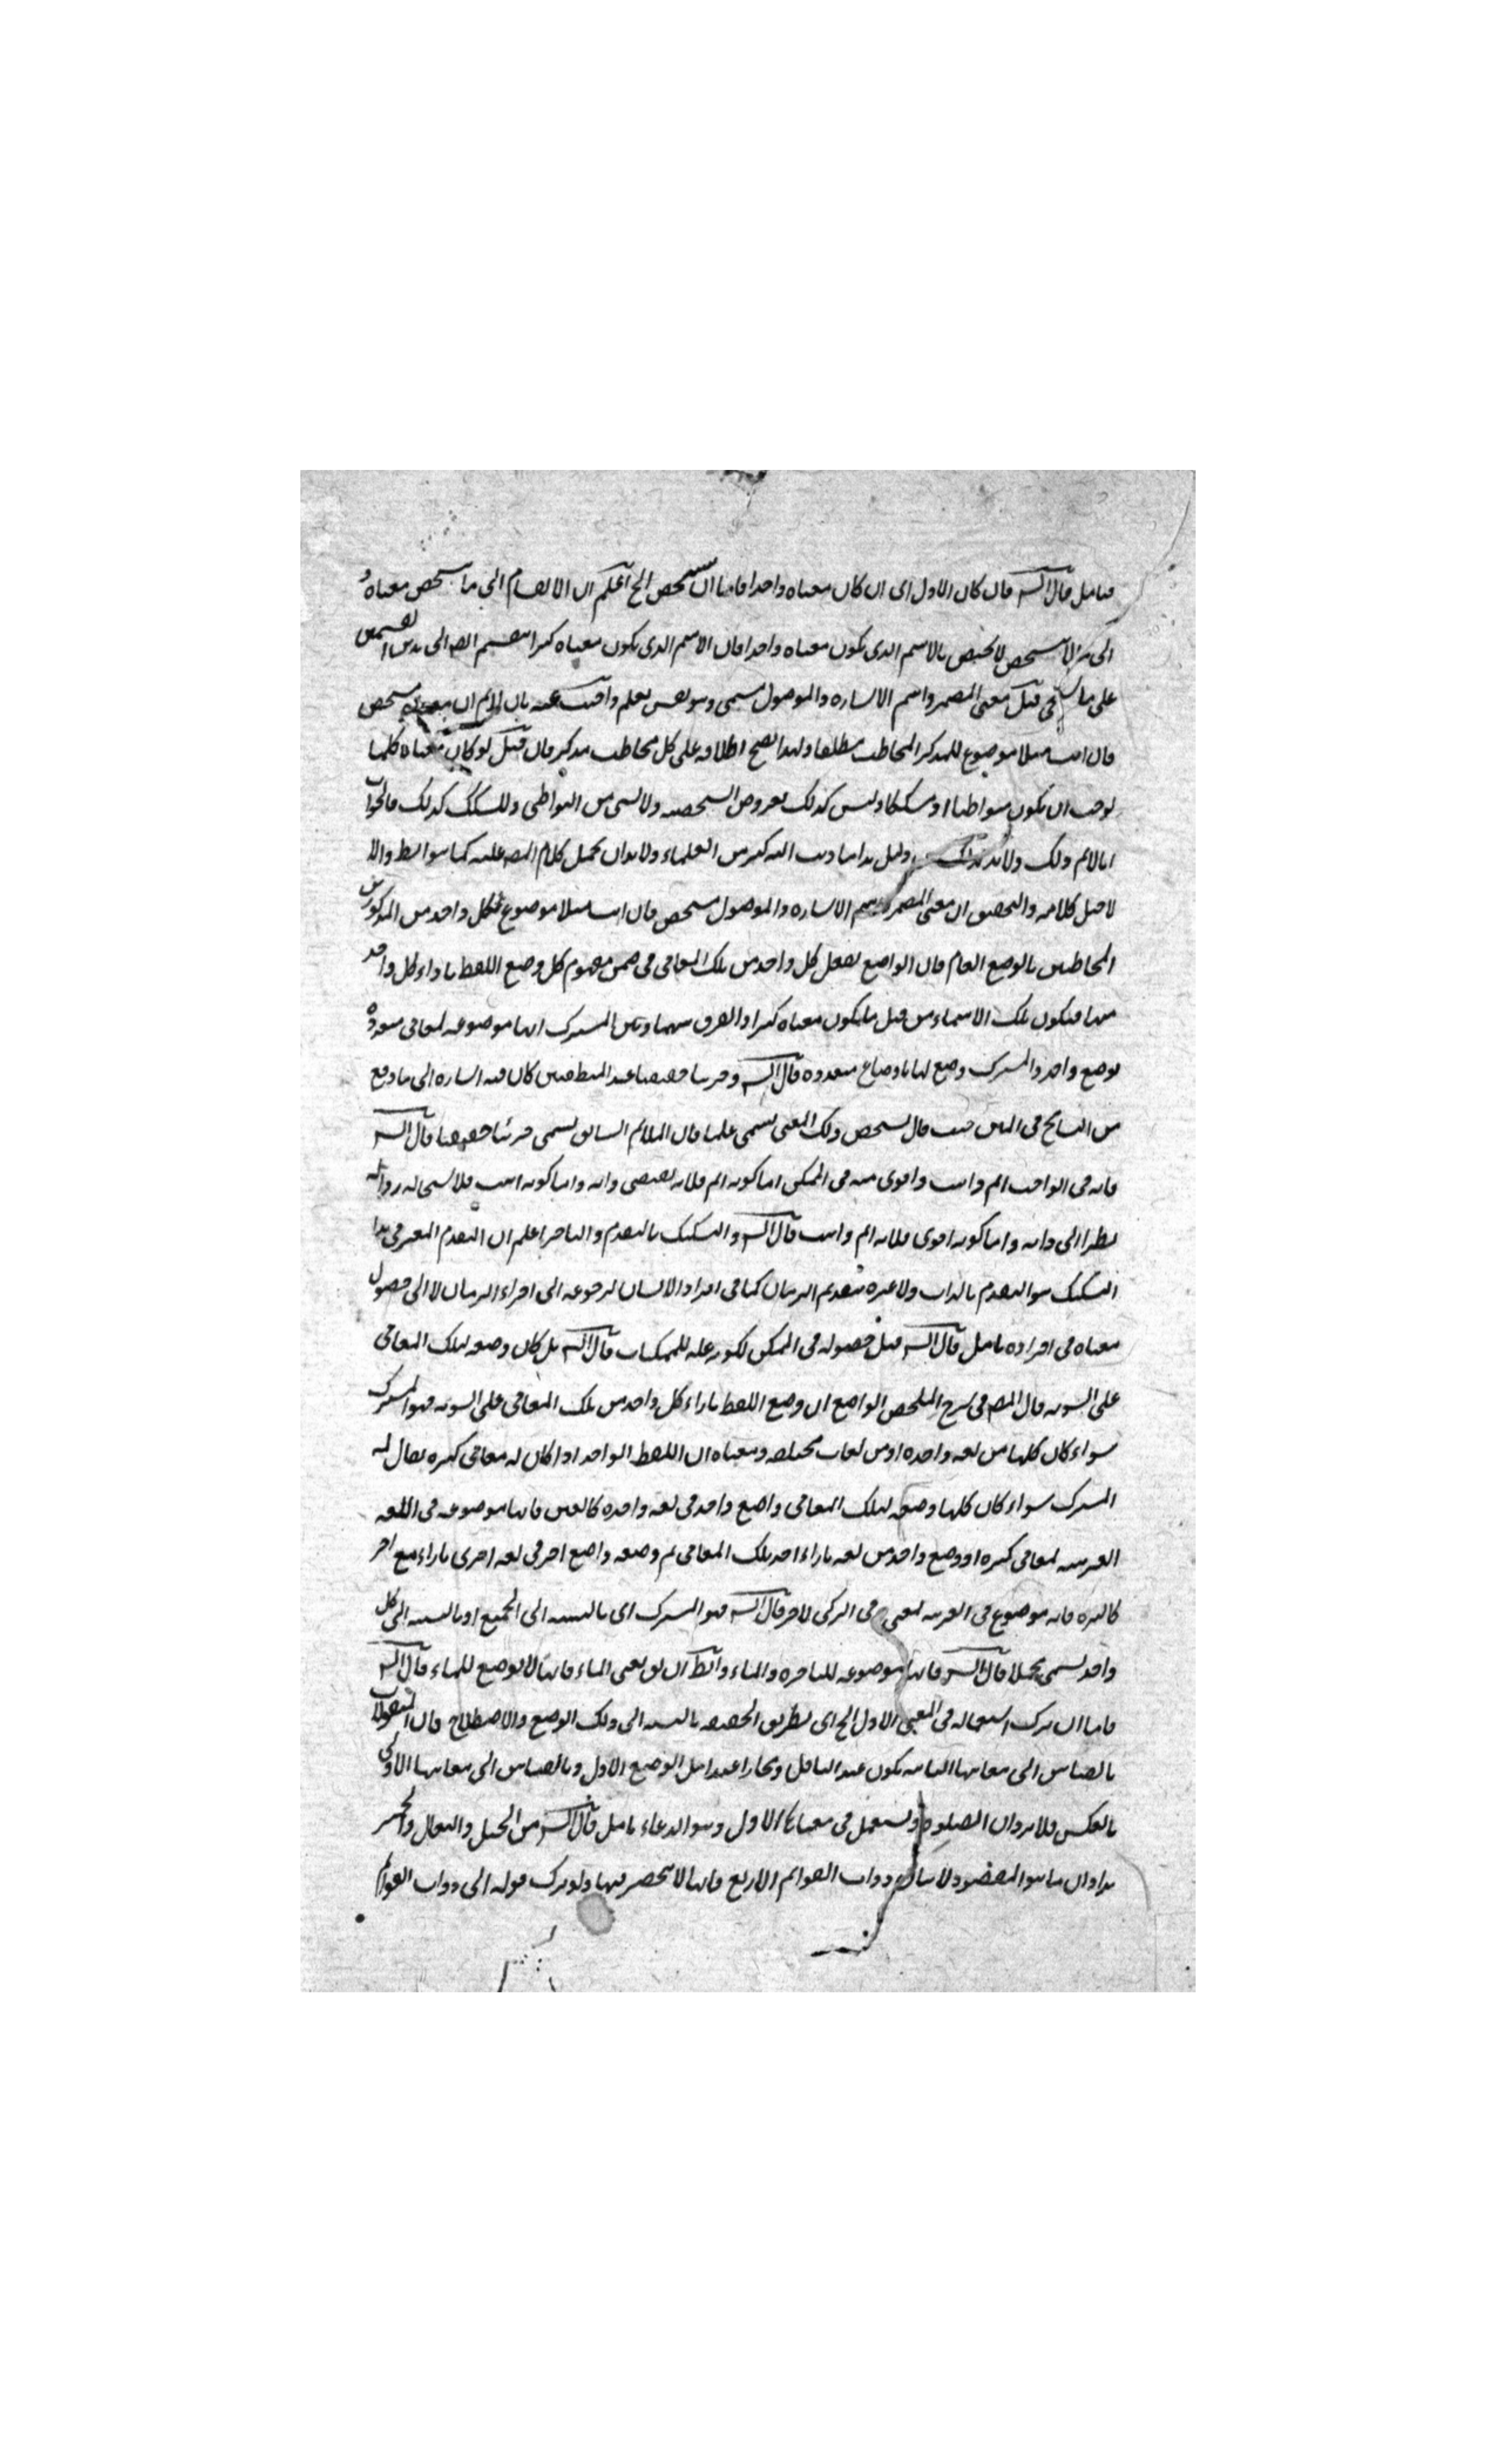 فتامل قال الشـ فان كان الاول اى ان كان معناه واحدا فاما ان يتشخص الخ اعلم ان الانقسام الى ما يتشخص معناه و
الى ما لا يتشخص لا يختص بالاسم الذى يكون معناه واحدا فان الاسم الذى يكون معناه كثيرا ينقسم ايضا الى هذين القسمين
على ما لا يخفى قيل معنى المضمر واسم الاشاره والموصول يسمى وهو ليس بعلم واجيب عنه بان لانم ان معنى يتشخص
فان انت مثلا موضوع للمذكر المخاطب مطلقا ولهذا يصح اطلاقه على كل مخاطب مذكر فان قيل لو كان معناه كليا
لوجب ان يكون متواطئا او مشككا وليس كذلك لعروض التشخصيه ولا شى من المتواطى والمشكك كذلك فالجواب
انا لانم ذلك ولا بد دليل هذا ما ذهب اليه كثير من العلماء ولا بد ان يحمل كلام المصـ عليه كما هو الظ والا
لاختل كلامه والتحقيق ان معنى المضمر واسم الاشاره والموصول متشخص فان انت مثلا موضوع لكل واحد من المذكورين
المخاطبين بالوضع العام فان الواضع تعقل كل واحد من تلك المعانى فى ضمن مفهوم كلى ووضع اللفظ بازاء كل واحد
منها فيكون تلك الاسماء من قبيل ما يكون معناه كثيرا والفرق بينها وبين المشترك انها موضوعه لمعانى متعدده
بوضع واحد والمشترك وضع لها باوضاع متعدده قال الشـ وجزئيا حقيقيا عند المنطقيين كان فيه اشاره الى ما وقع
من التسامح فى المتن حيث قال تشخص ذلك المعنى يسمى علما فان الملائم السابق يسمى جزئيا حقيقيا قال الشـ
فانه فى الواجب اتم واثبت واقوى منه فى الممكن اما كونه اتم فلانه يقتضى ذاته واما كونه اثبت فلا يستحاله زواله
نظرا الى ذاته واما كونه اقوى فلانه اتم واثبت قال الشـ والتشكيك بالتقدم والتاخر اعلم ان التقدم المعتبر فى هذا
التشكيك هو التقدم بالذات ولا عبره بتقدم الزمان كما فى افراد الانسان لرجوعه الى اجزاء الزمان لا الى حصول
معناه فى افراده تامل قال الشـ قبل حصوله فى الممكن لكونه عله للممكنات قال الشـ بل كان وضعه لتلك المعانى
على السويه قال المصـ فى شرح الملخص الواضع ان وضع اللفظ بازاء كل واحد من تلك المعانى على السويه فهو المشترك
سواء كان كلها من لغه واحده او من لغات مختلفه ومعناه ان اللفظ الواحد اذا كان له معانى كثيره يقال له
المشترك سواء كان كلها وضعه لتلك المعانى واضع واحد فى لغه واحده كالعين فانها موضوعه فى اللغه
العربيه لمعانى كثيره او وضع واحد من لغه بازاء احد تلك المعانى ثم وضعه واضع اخر فى لغه اخرى بازاء مع اخر
كالبئره فانه موضوع فى العربيه لمعنى فى التركى لاخر قال الشـ فهو المشترك اى بالنسبه الى الجميع او بالنسبه الى كل
واحد يسمى مجملا قال الشـ فانها موضوعه للباصره والماء والظ ان يق ينبوع الماء فانها لا توضع للماء قال الشـ
فاما ان يترك استعماله فى المعنى الاول الخ اى بطريق الحقيقه بالنسبه الى ذلك الوضع والاصطلاح فان المنقولات
بالقياس الى معانيها الثانيه يكون عند الناقل ومجازا عند اهل الوضع الاول وبالقياس الى معانيها الاولى
بالعكس فلا يرد ان الصلوه ويستعمل فى معناها الاول وهو الدعاء تامل قال الشـ من الخيل والبغال والحمير
يراد ان ما هو المقصود لا بيان ذوات القوائم الاربع فانها لا تنحصر فيها ولو ترك قوله الى ذوات القوائم